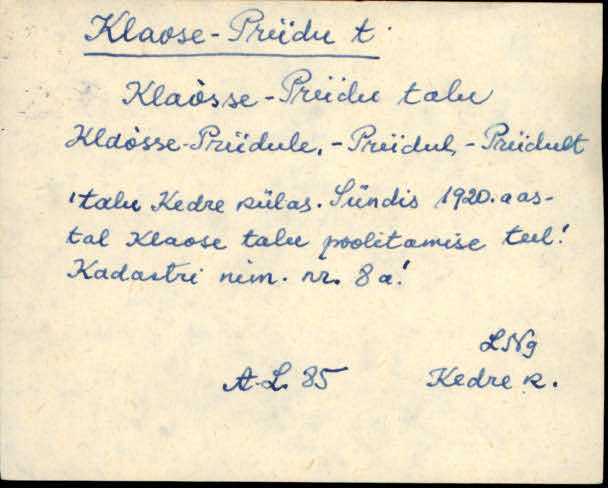 Klaose-Priidu t.
Klaòsse-Priidu talu
Klaòsse-Priidule, -Priidul, -Priidult
'talu Kedre külas. Sündis 1920. aas-
tal Klaose talu poolitamise teel!
Kadastri nim. nr. 8a!
LNg
A.L. 85 Kedre k.